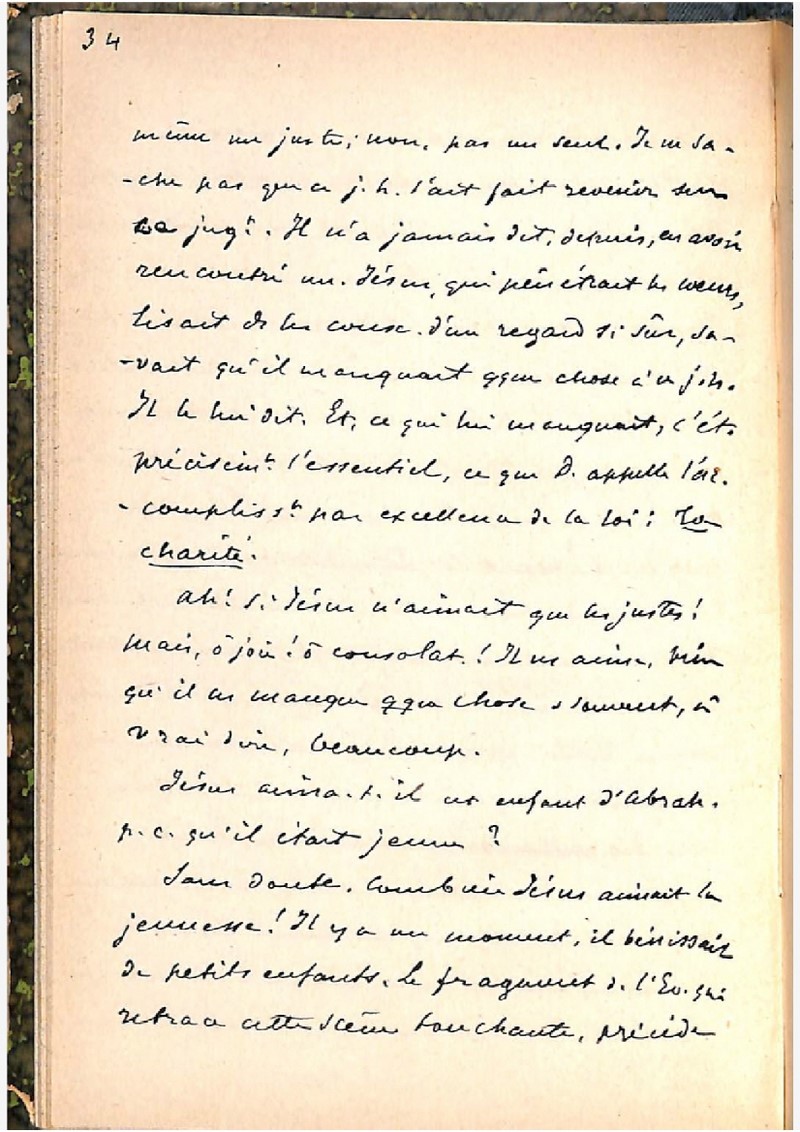 34
même un juste; non, pas un seul. Je ne sa-
-che pas que ce j. h. l'ait fait revenir sur
ce jugt. Il n'a jamais dit, depuis, en avoir
rencontré un. Jésus, qui pénétrait les cœurs,
lisait ds les consc. d'un regard si sûr, sa-
-vait qu'il manquait qque chose à ce j. h.
Il le lui dit. Et, ce qui lui manquait, c'ét.
précisémt l'essentiel, ce que D. appelle l'ac-
-complisst par excellence de la loi: La
charité.
Ah! si Jésus n'aimait que les justes!
Mais, ô joie! ô consolat.! Il ns aime, bien
qu'il ns manque qque chose & souvent, à
vrai dire, beaucoup.
Jésus aima-t-il cet enfant d'Abrah.
p. c. qu'il était jeune?
Sans doute. Combien Jésus aimait la
jeunesse! Il y a un moment, il bénissait
de petits enfants. Le fragment de l'Ev. qui
retrace cette scène touchante, précède